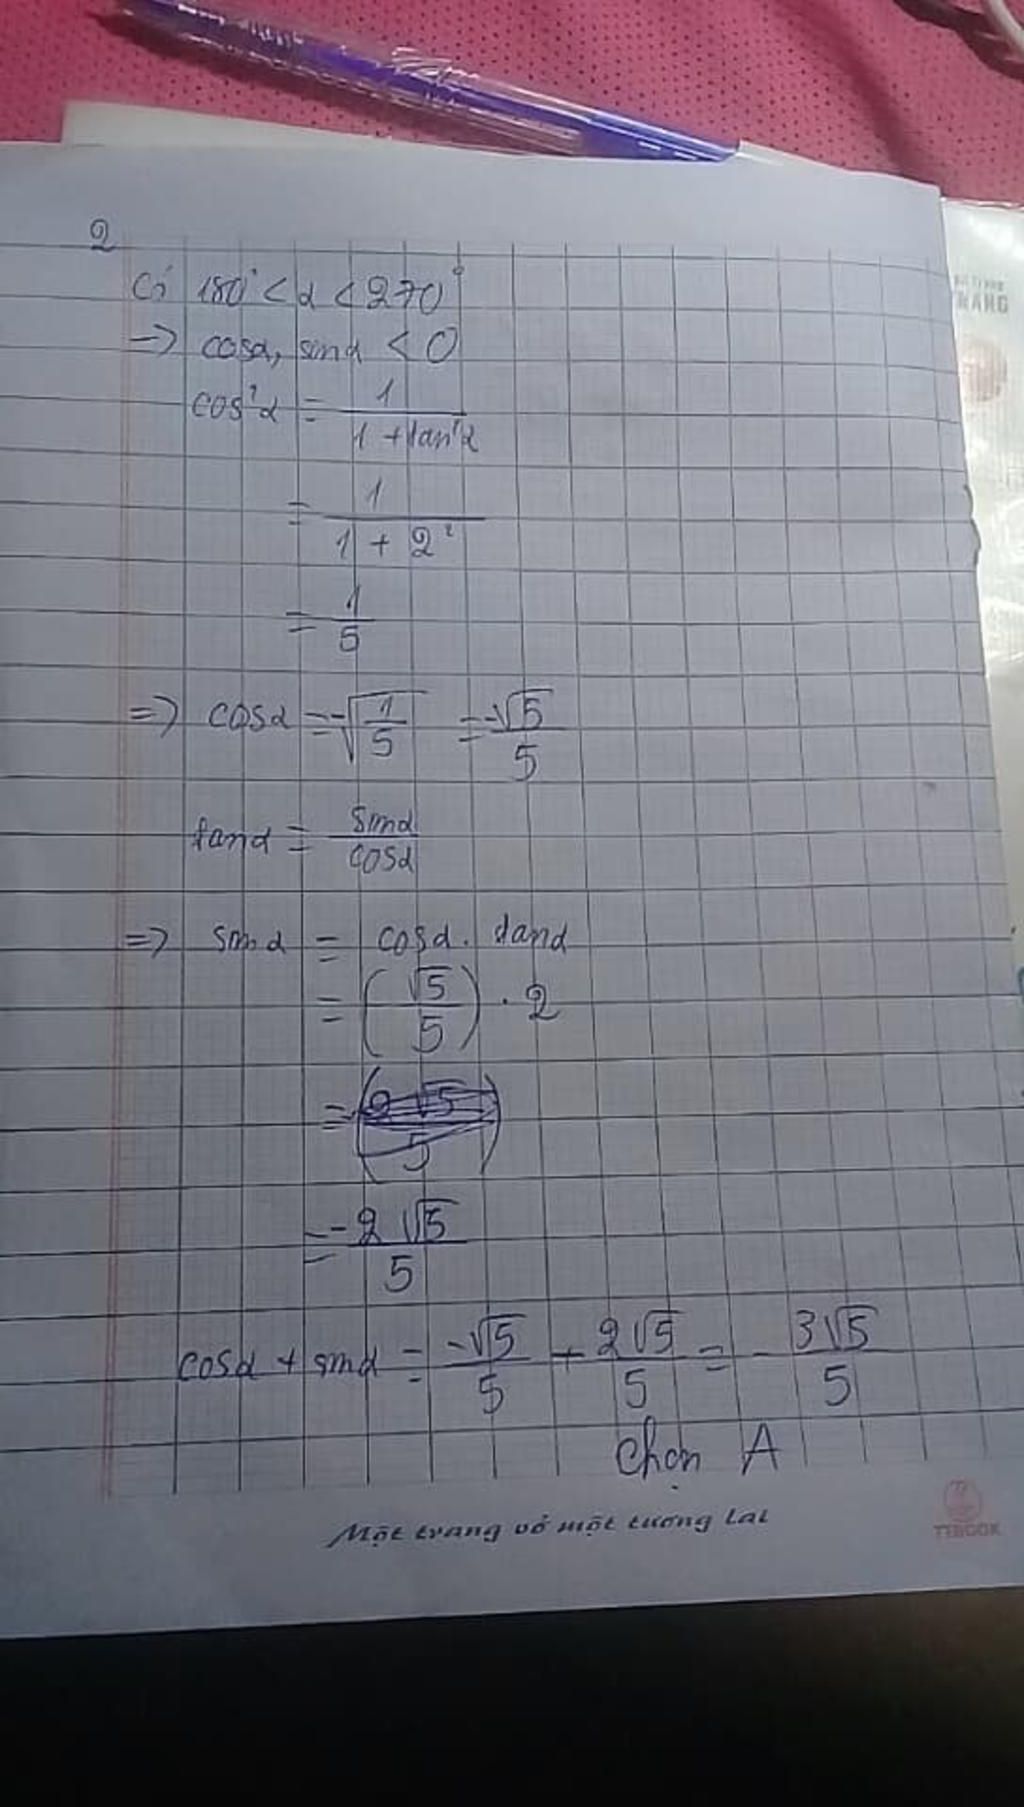 2
Có 180° < α < 270°
=> cosα, sinα < 0
cos²α = 1 / (1 + tan²α)
= 1 / (1 + 2²)
= 1/5
=> cosα = -√(1/5) = -√5/5
tanα = sinα/cosα
=> sinα = cosα . tanα
= (-√5/5) . 2
= -2√5/5
cosα + sinα = -√5/5 - 2√5/5 = -3√5/5
Chọn A
Một trang vở một tương lai
TTBOOK